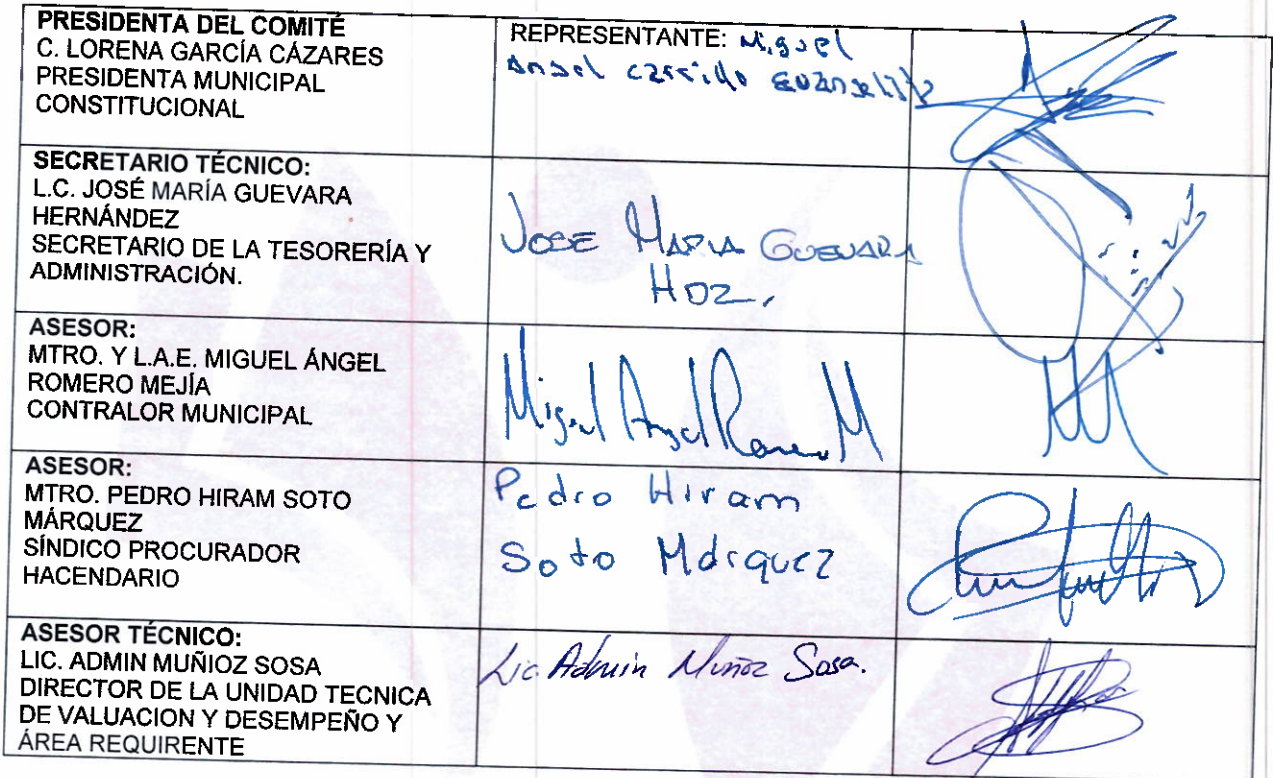 PRESIDENTA DEL COMITÉ
C. LORENA GARCÍA CÁZARES
PRESIDENTA MUNICIPAL
CONSTITUCIONAL
REPRESENTANTE: Miguel
Angel Carrillo
SECRETARIO TÉCNICO:
L.C. JOSÉ MARÍA GUEVARA
HERNÁNDEZ
SECRETARIO DE LA TESORERÍA Y
ADMINISTRACIÓN.
JOSE MARIA GUEVARA
HDZ.
ASESOR:
MTRO. Y L.A.E. MIGUEL ÁNGEL
ROMERO MEJÍA
CONTRALOR MUNICIPAL
Miguel Angel Romero M
ASESOR:
MTRO. PEDRO HIRAM SOTO
MÁRQUEZ
SÍNDICO PROCURADOR
HACENDARIO
Pedro Hiram
Soto Márquez
ASESOR TÉCNICO:
LIC. ADMIN MUÑIOZ SOSA
DIRECTOR DE LA UNIDAD TECNICA
DE VALUACION Y DESEMPEÑO Y
ÁREA REQUIRENTE
Lic. Admin Muñoz Sosa.